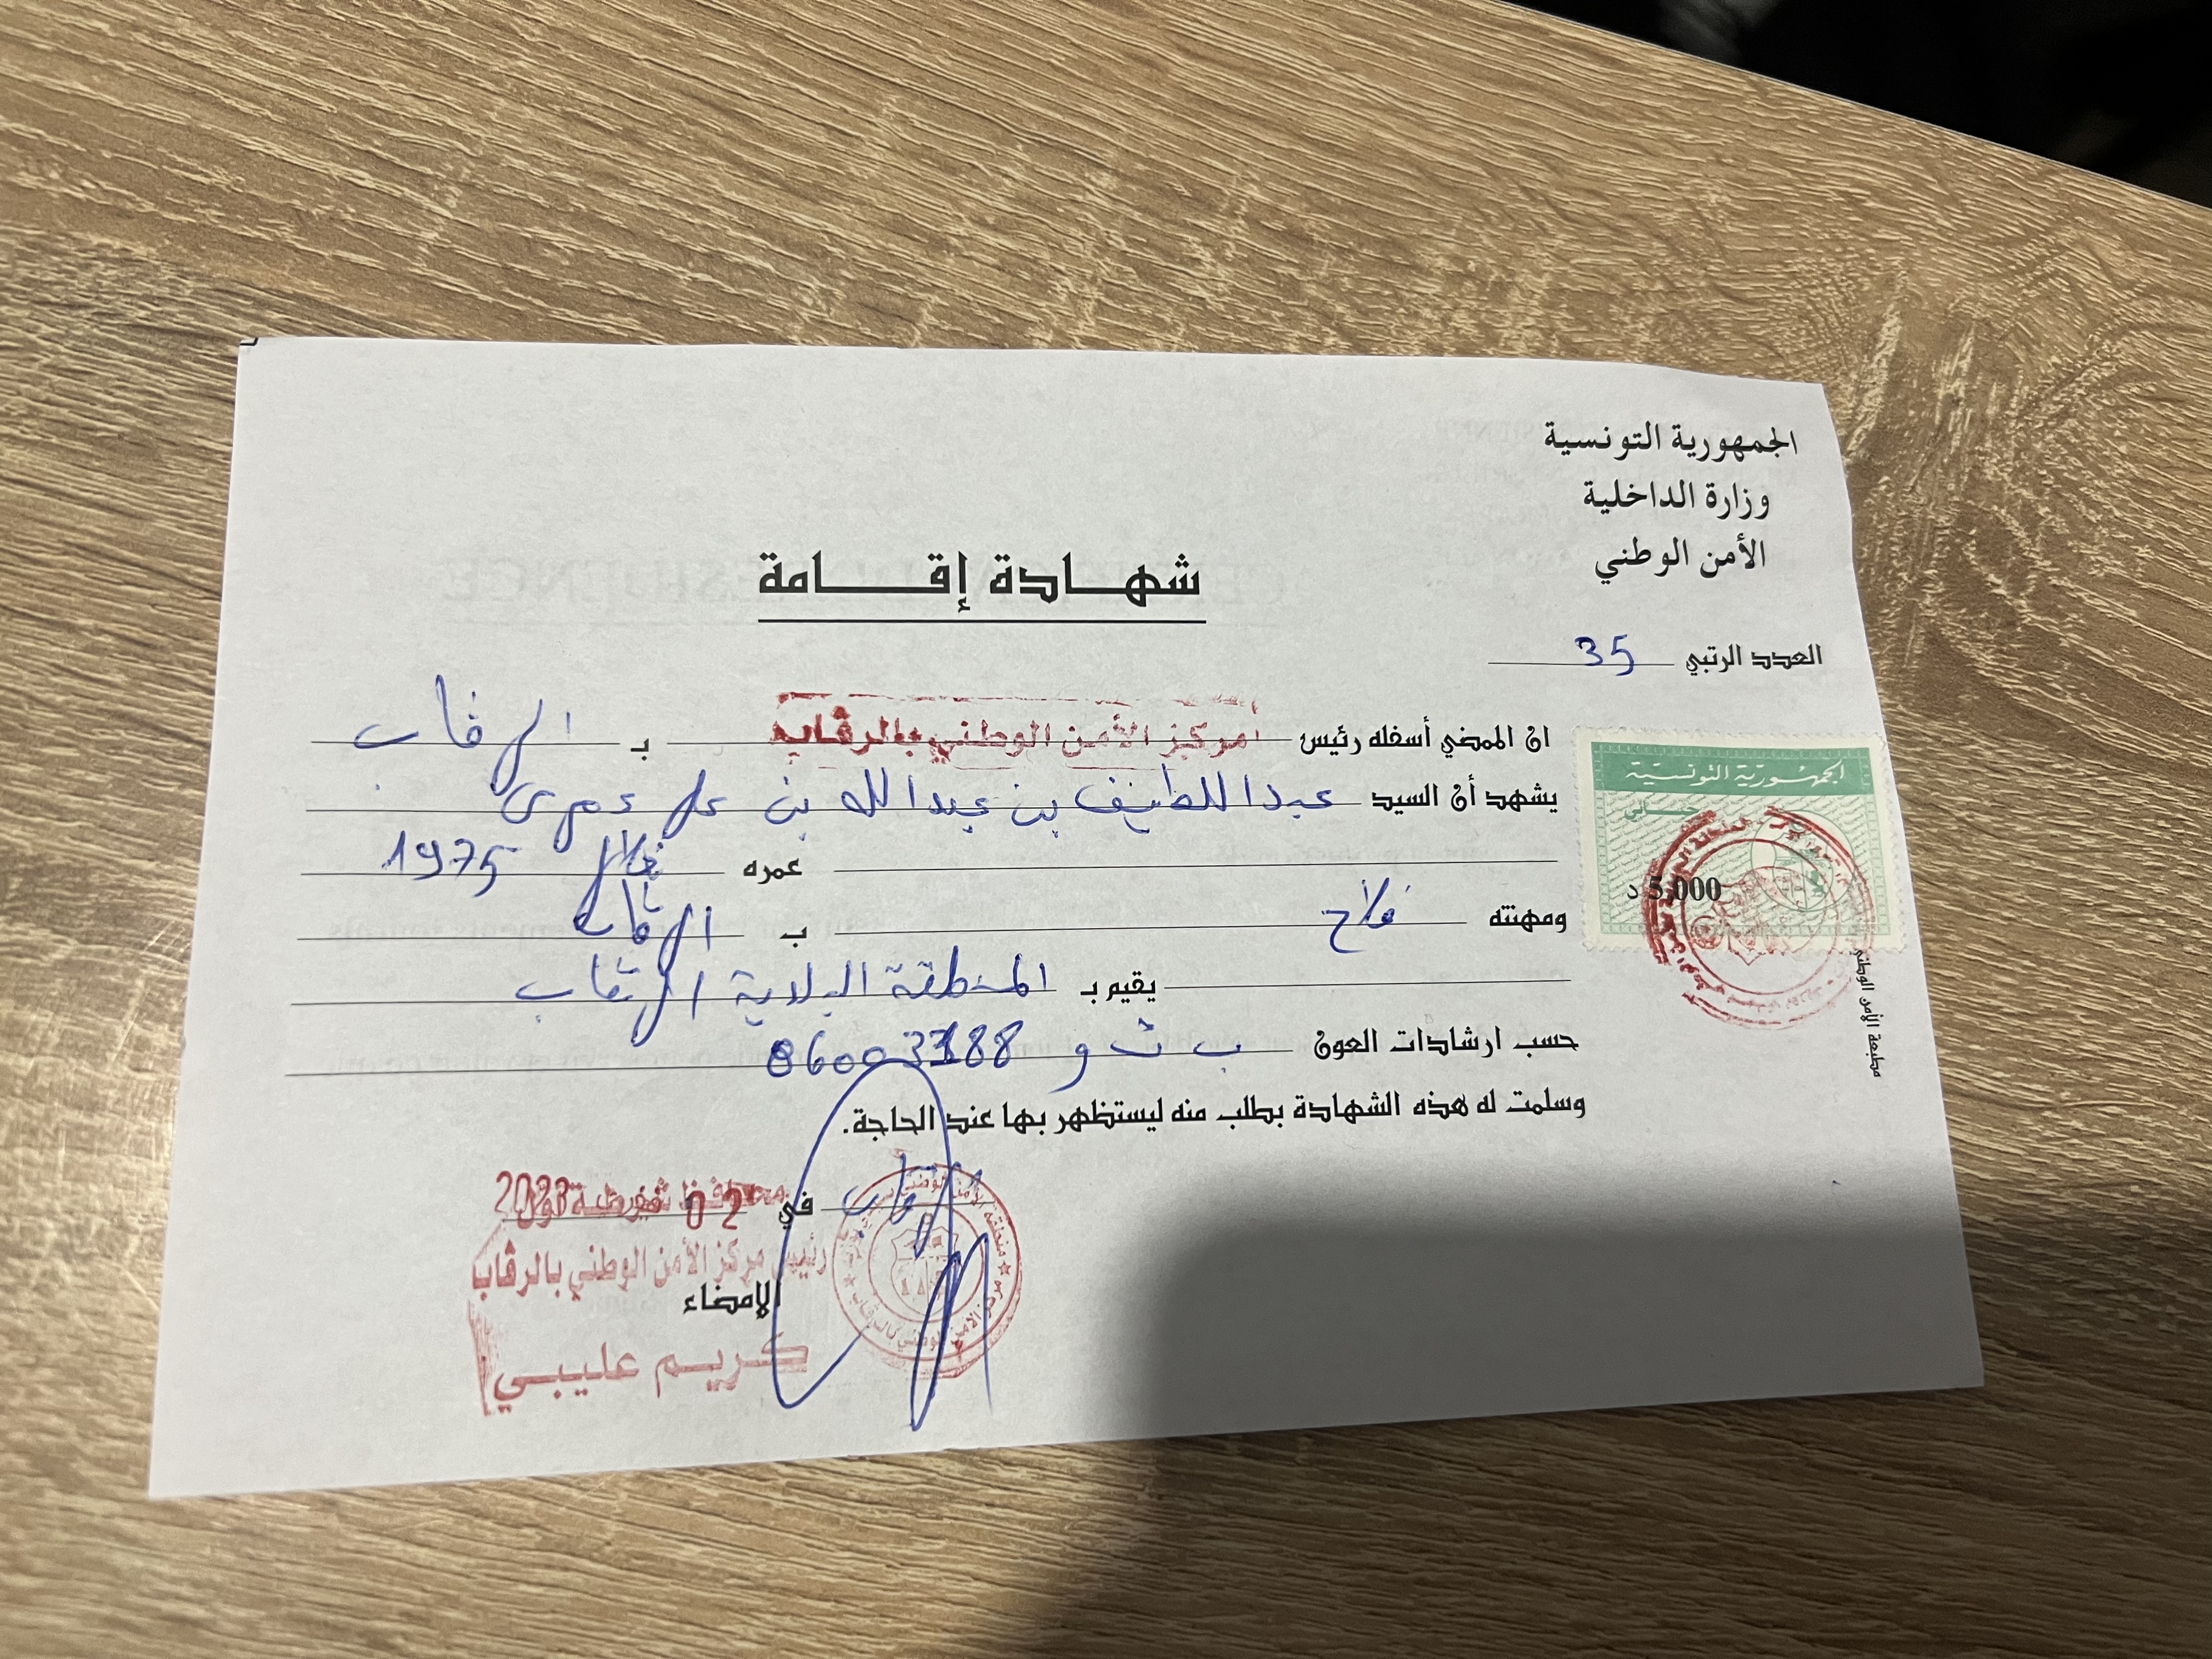 الجمهورية التونسية
وزارة الداخلية
الأمن الوطني
شهادة إقامة
العدد الرتبي 35
ان الممضي أسفله رئيس مركز الأمن الوطني بالرقاب بـ الرقاب
يشهد أن السيد عبد اللطيف بن عبد الله بن علي عمري
عمره خلال 1975
ومهنته فلاح ب الرقاب
يقيم بـ المنطقة البلدية الرقاب
حسب ارشادات العون ب ت و
وسلمت له هذه الشهادة بطلب منه ليستظهر بها عند الحاجة.
الرقاب في 02
رئيس مركز الأمن الوطني بالرقاب
الإمضاء
كريم عليبي
الجمهورية التونسية
جبائي
5,000 د
مطبعة الأمن الوطني